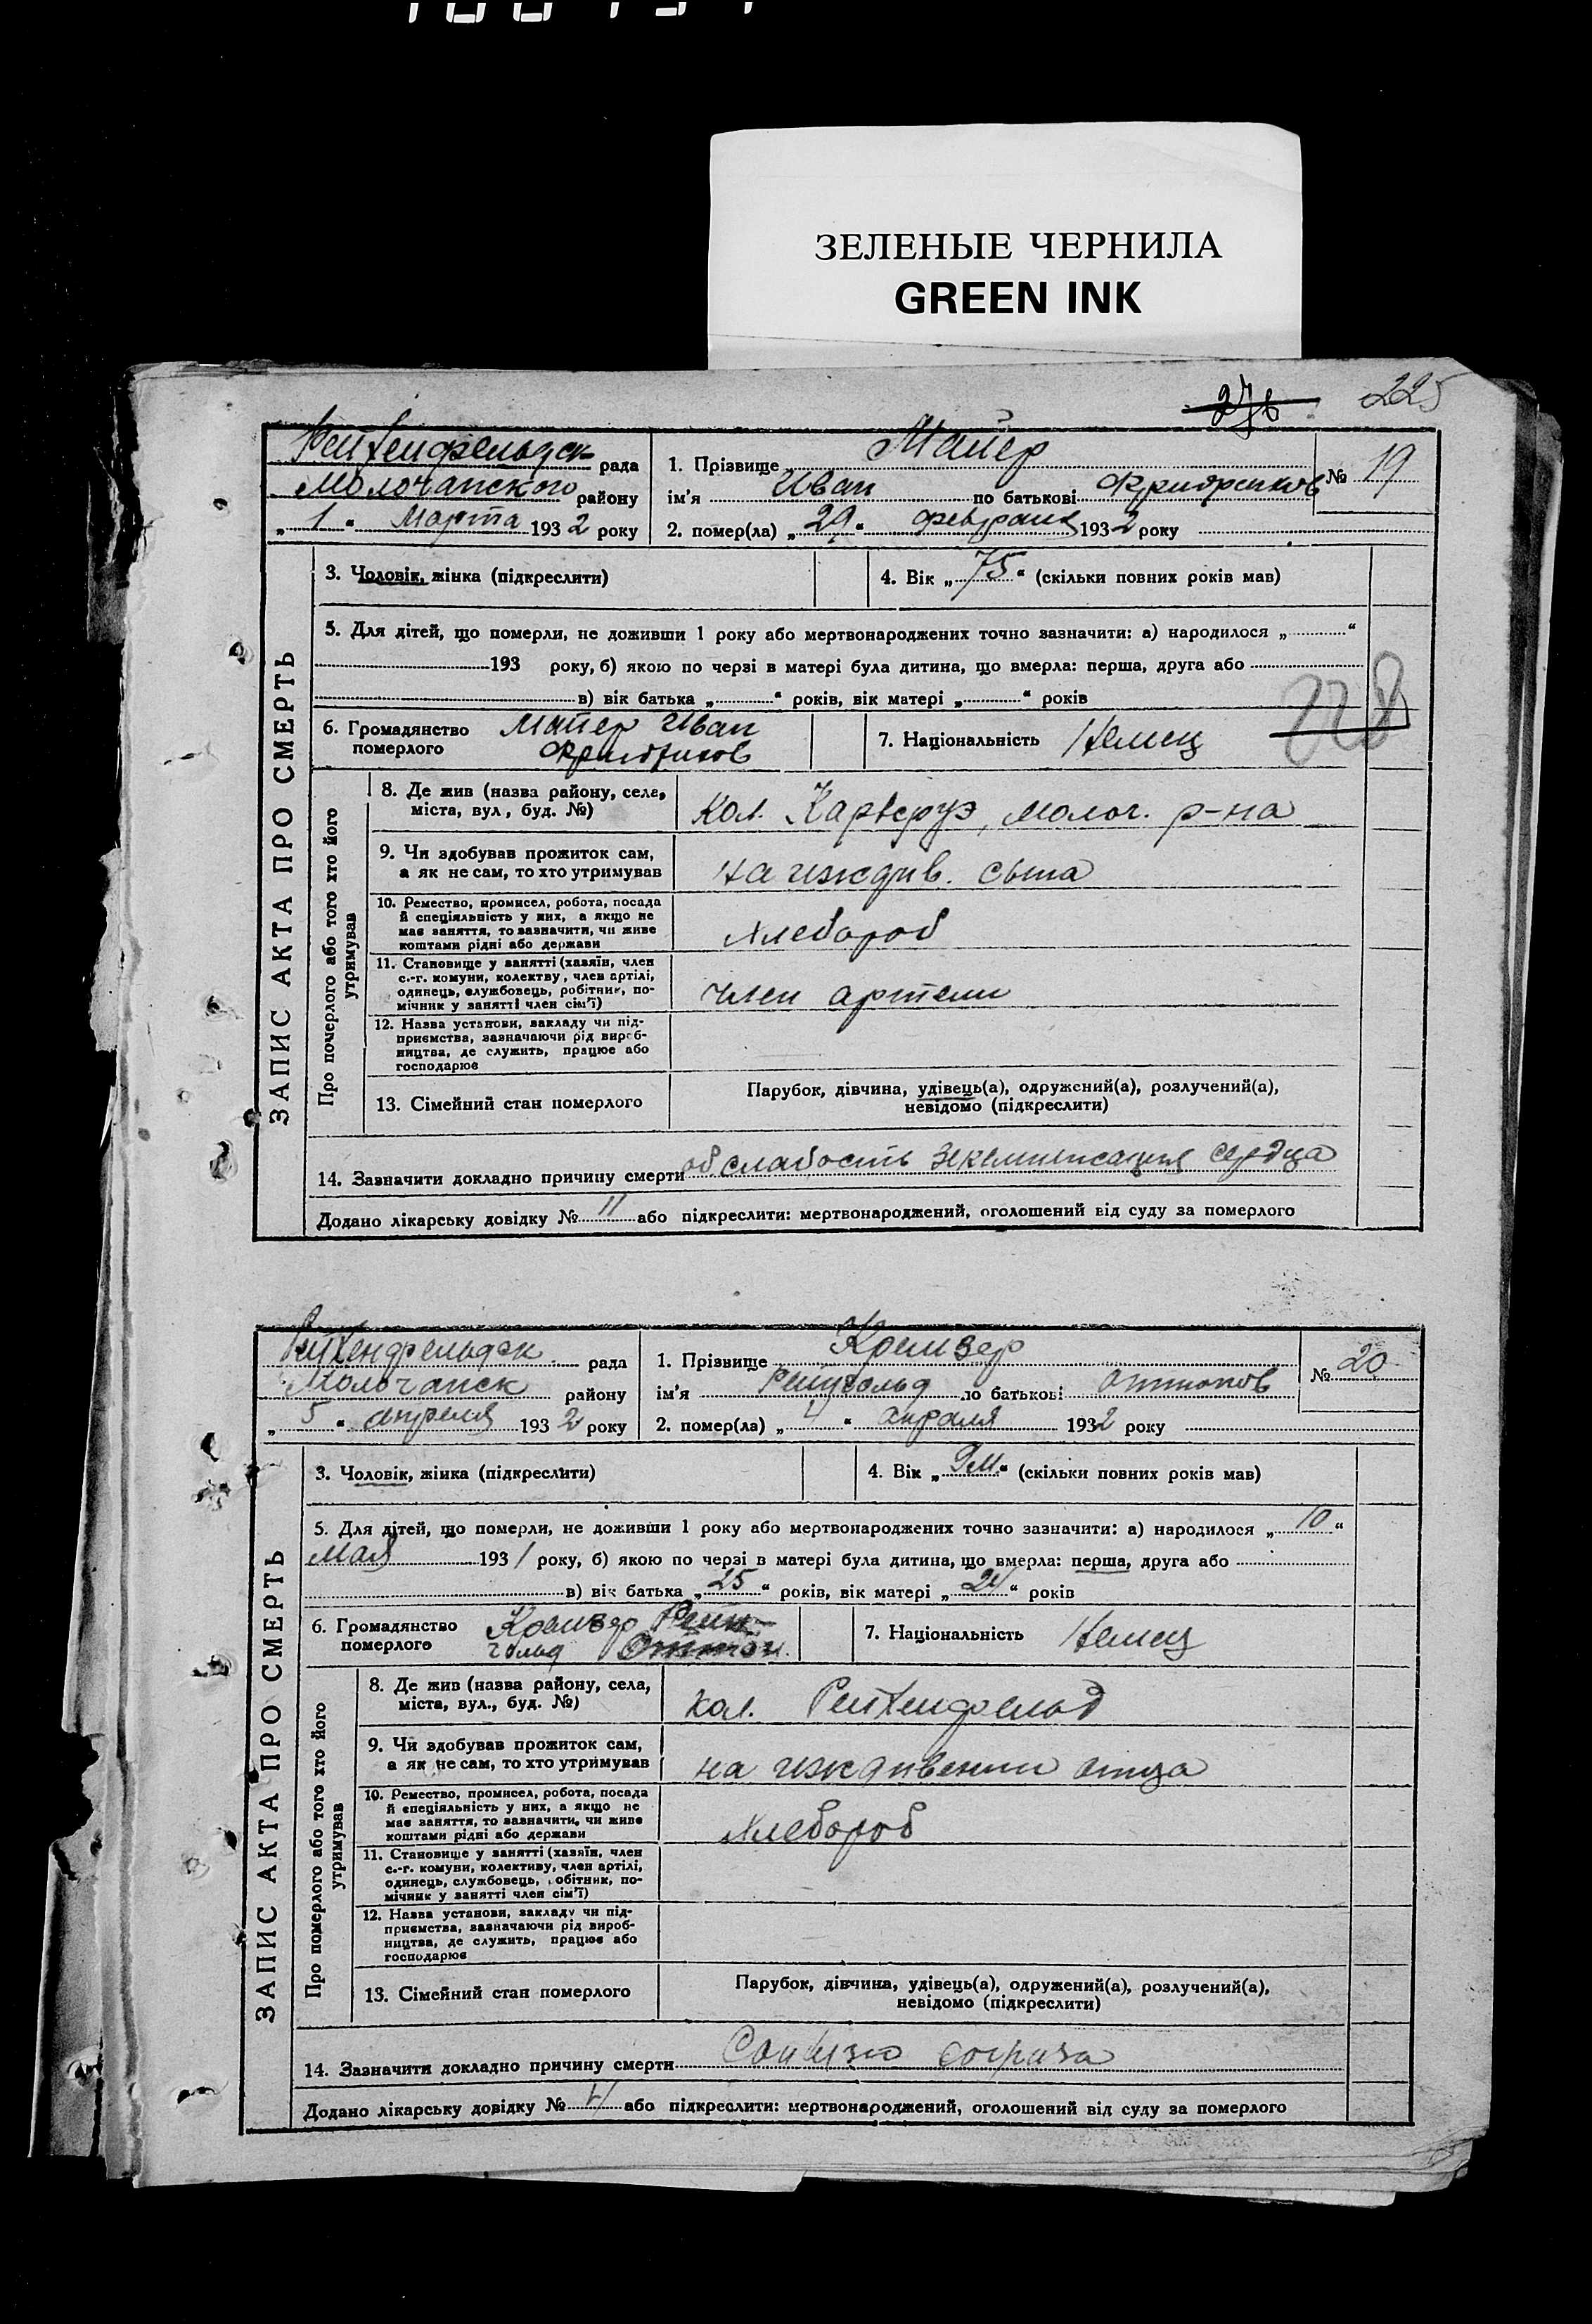 ЗЕЛЕНЫЕ ЧЕРНИЛА
GREEN INK
276 225
Рейхенфельдск рада
Молочанского району
„ 1 “ Марта 1932 року
1. Прізвище Майер
ім'я Иван по батькові Фридрихов
2. помер(ла) „ 29 “ февраля 1932 року
№ 19
ЗАПИС АКТА ПРО СМЕРТЬ
3. Чоловік, жінка (підкреслити)
4. Вік „ 75 “ (скільки повних років мав)
5. Для дітей, що померли, не доживши 1 року або мертвонароджених точно зазначити: а) народилося „ “
193 року, б) якою по черзі в матері була дитина, що вмерла: перша, друга або
в) вік батька „ “ років, вік матері „ “ років
228
6. Громадянство померлого Майер Иван
Фридрихов
7. Національність Немец
Про померлого або того хто його утримував
8. Де жив (назва району, села,
міста, вул., буд. №)
Кол. Карлсруэ, Молоч. р-на
9. Чи здобував прожиток сам,
а як не сам, то хто утримував
на иждив. сына
10. Ремество, промисел, робота, посада
й спеціяльність у них, а якщо не
має заняття, то зазначити, чи живе
коштами рідні або держави
Хлебороб
11. Становище у занятті (хазяїн, член
с.-г. комуни, колективу, член артілі,
одинець, службовець, робітник, по-
мічник у занятті член сім'ї)
член артели
12. Назва установи, закладу чи під-
приємства, зазначаючи рід вироб-
ництва, де служить, працює або
господарює
13. Сімейний стан померлого
Парубок, дівчина, удівець(а), одружений(а), розлучений(а),
невідомо (підкреслити)
14. Зазначити докладно причину смерти об. слабость сердца
Додано лікарську довідку № 11 або підкреслити: мертвонароджений, оголошений від суду за померлого
Рейхенфельдск рада
Молочанск району
„ 5 “ апреля 1932 року
1. Прізвище Крейзер
ім'я Рейнгольд по батькові Оттонов
2. помер(ла) „ 4 “ апреля 1932 року
№ 20
ЗАПИС АКТА ПРО СМЕРТЬ
3. Чоловік, жінка (підкреслити)
4. Вік „ “ (скільки повних років мав)
5. Для дітей, що померли, не доживши 1 року або мертвонароджених точно зазначити: а) народилося „ 10 “
Мая 1931 року, б) якою по черзі в матері була дитина, що вмерла: перша, друга або
в) вік батька „ 25 “ років, вік матері „ 24 “ років
6. Громадянство померлого Крейзер Рейн-
гольд Оттон.
7. Національність Немец
Про померлого або того хто його утримував
8. Де жив (назва району, села,
міста, вул., буд. №)
кол. Рейхенфельд
9. Чи здобував прожиток сам,
а як не сам, то хто утримував
на иждивении отца
10. Ремество, промисел, робота, посада
й спеціяльність у них, а якщо не
має заняття, то зазначити, чи живе
коштами рідні або держави
Хлебороб
11. Становище у занятті (хазяїн, член
с.-г. комуни, колективу, член артілі,
одинець, службовець, робітник, по-
мічник у занятті член сім'ї)
12. Назва установи, закладу чи під-
приємства, зазначаючи рід вироб-
ництва, де служить, працює або
господарює
13. Сімейний стан померлого
Парубок, дівчина, удівець(а), одружений(а), розлучений(а),
невідомо (підкреслити)
14. Зазначити докладно причину смерти
Додано лікарську довідку № або підкреслити: мертвонароджений, оголошений від суду за померлого